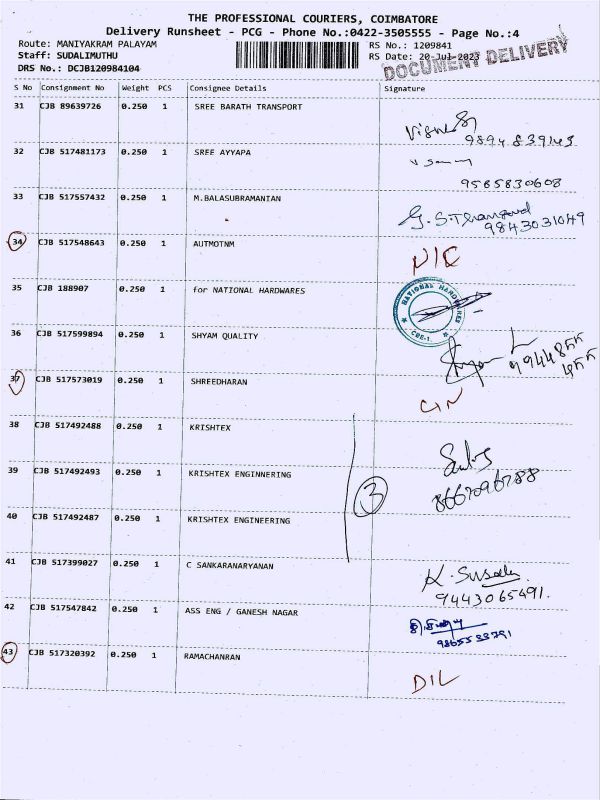 THE PROFESSIONAL COURIERS, COIMBATORE
Delivery Runsheet - PCG - Phone No.:0422-3505555 - Page No.:4
Route: MANIYAKRAM PALAYAM
Staff: SUDALIMUTHU
DRS No.: DCJB120984104
RS No.: 1209841
RS Date: 20-Jul-2023
DOCUMENT DELIVERY
S No Consignment No Weight PCS Consignee Details Signature
31 CJB 89639726 0.250 1 SREE BARATH TRANSPORT
9894839143
32 CJB 517481173 0.250 1 SREE AYYAPA
9585830608
33 CJB 517557432 0.250 1 M.BALASUBRAMANIAN
9843031049
34 CJB 517548643 0.250 1 AUTMOTNM
35 CJB 188907 0.250 1 for NATIONAL HARDWARES
NATIONAL HARDWARES
CBE-1.
36 CJB 517599894 0.250 1 SHYAM QUALITY
37 CJB 517573019 0.250 1 SHREEDHARAN
38 CJB 517492488 0.250 1 KRISHTEX
39 CJB 517492493 0.250 1 KRISHTEX ENGINNERING
3
8667096788
40 CJB 517492487 0.250 1 KRISHTEX ENGINEERING
41 CJB 517399027 0.250 1 C SANKARANARYANAN
9443065491.
42 CJB 517547842 0.250 1 ASS ENG / GANESH NAGAR
43 CJB 517320392 0.250 1 RAMACHANRAN
DIL